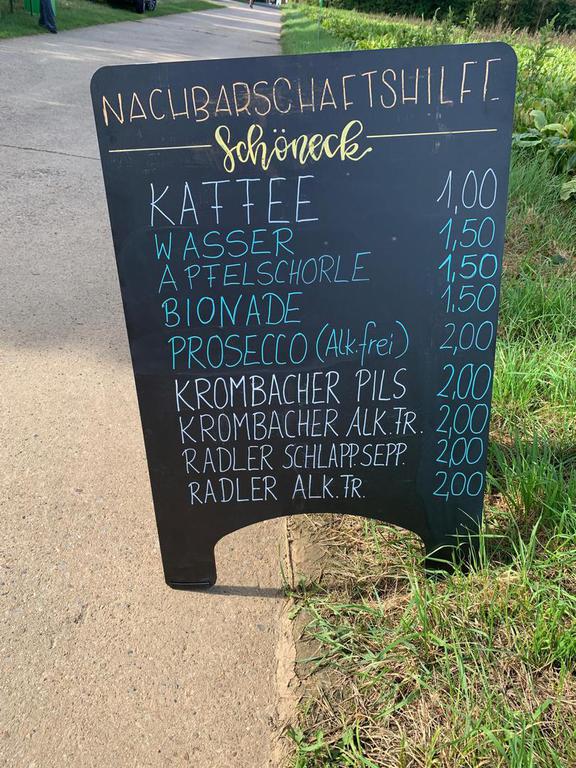 NACHBARSCHAFTSHILFE
Schöneck
KAFFEE 1,00
WASSER 1,50
APFELSCHORLE 1,50
BIONADE 1,50
PROSECCO (Alk.frei) 2,00
KROMBACHER PILS 2,00
KROMBACHER ALK.FR. 2,00
RADLER SCHLAPP.SEPP. 2,00
RADLER ALK.FR. 2,00